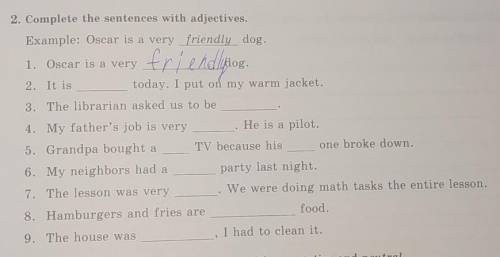 2. Complete the sentences with adjectives.
Example: Oscar is a very friendly dog.
1. Oscar is a very friendly dog.
2. It is ________ today. I put on my warm jacket.
3. The librarian asked us to be ________.
4. My father's job is very ______. He is a pilot.
5. Grandpa bought a ____ TV because his ____ one broke down.
6. My neighbors had a ______ party last night.
7. The lesson was very _______. We were doing math tasks the entire lesson.
8. Hamburgers and fries are ____________ food.
9. The house was __________, I had to clean it.